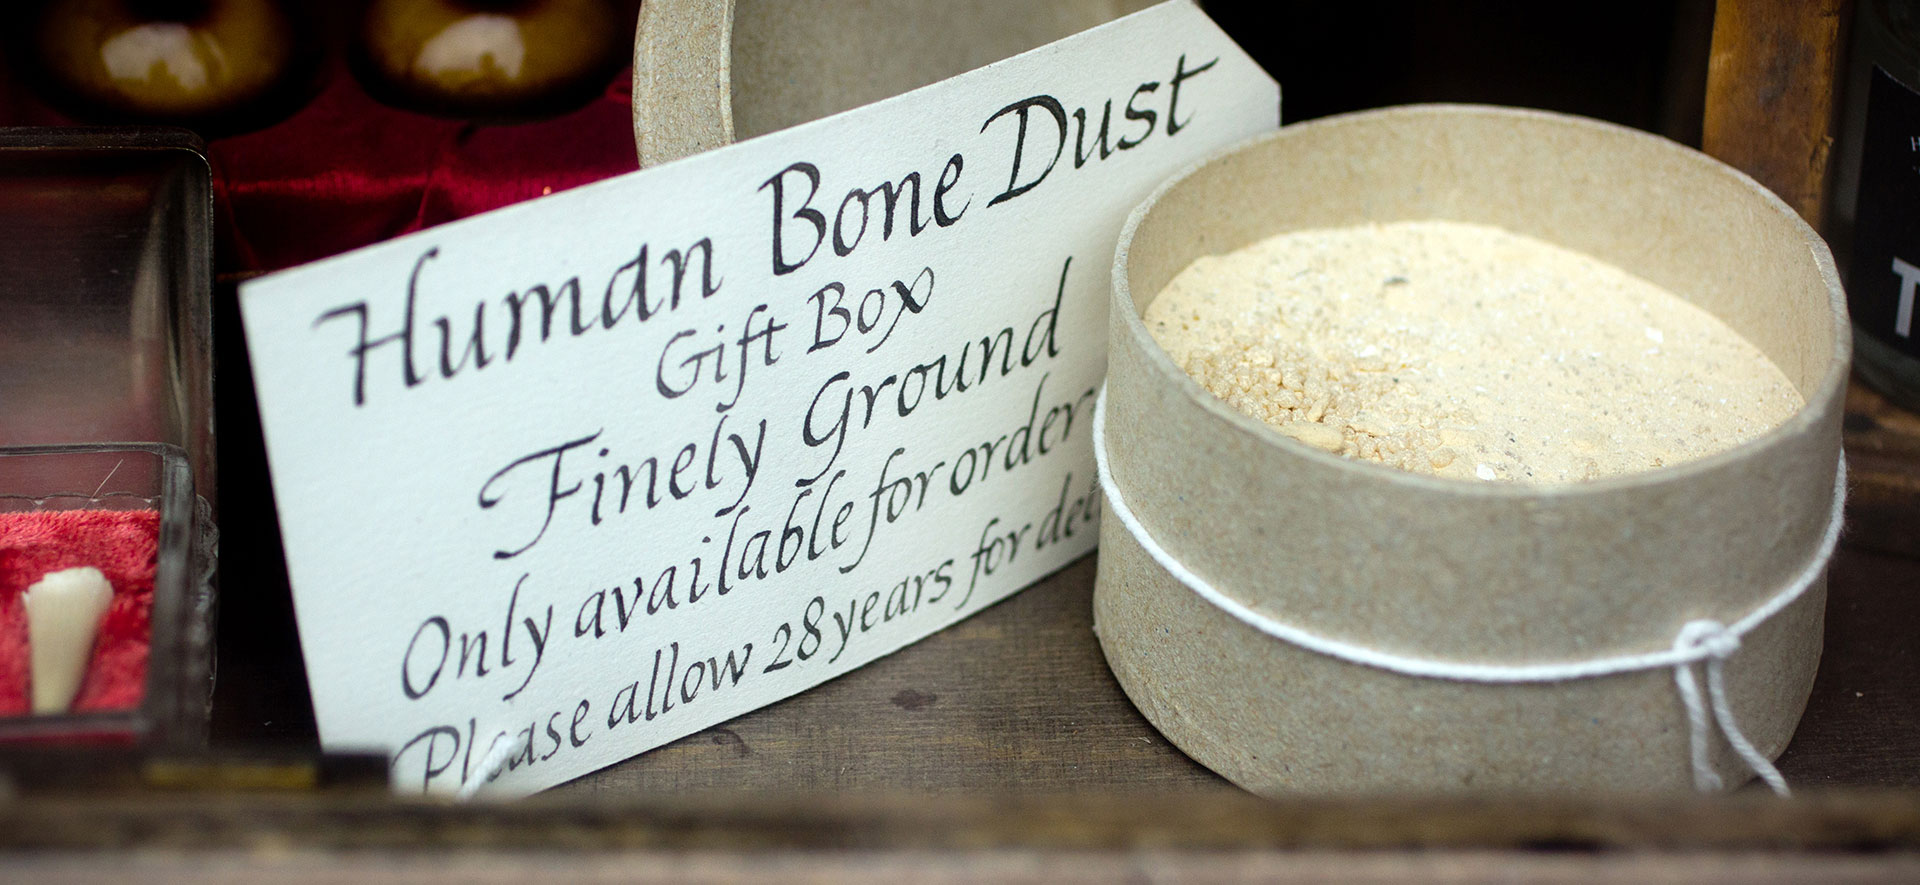 Human Bone Dust
Gift Box
Finely Ground
Only available for order
Please allow 28 years for